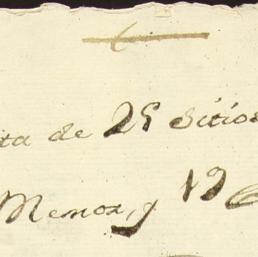 ta de 25 Sitios
Menor, y 19